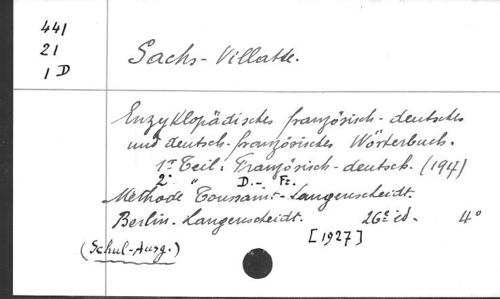 441
21
1 D
Sachs-Villatte.
Enzyklopädisches französisch-deutsches
und deutsch-französisches Wörterbuch.
1r Teil: Französisch-deutsch. (194)
2° " D.-Fz.
Methode Toussaint-Langenscheidt.
Berlin. Langenscheidt. 26e éd. 4°
[1927]
(Schul-Ausg.)